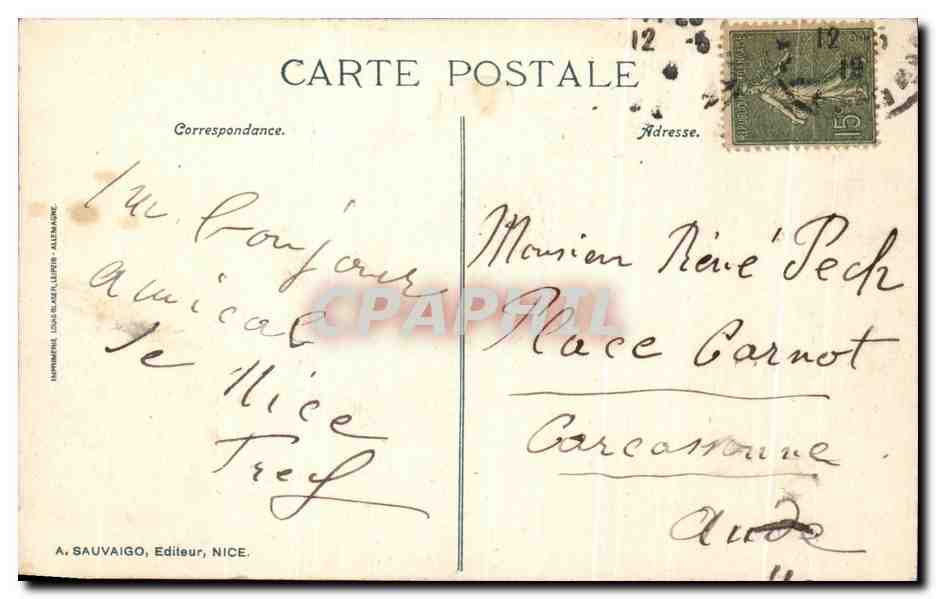 CARTE POSTALE
Correspondance.
Adresse.
12 -5
12
19
15c
Un bonjour
amical
de Nice
Monsieur René Pech
Place Carnot
Carcassonne
Aude
CPAPHIL
IMPRIMERIE LOUIS GLASER, LEIPZIG - ALLEMAGNE.
A. SAUVAIGO, Editeur, NICE.